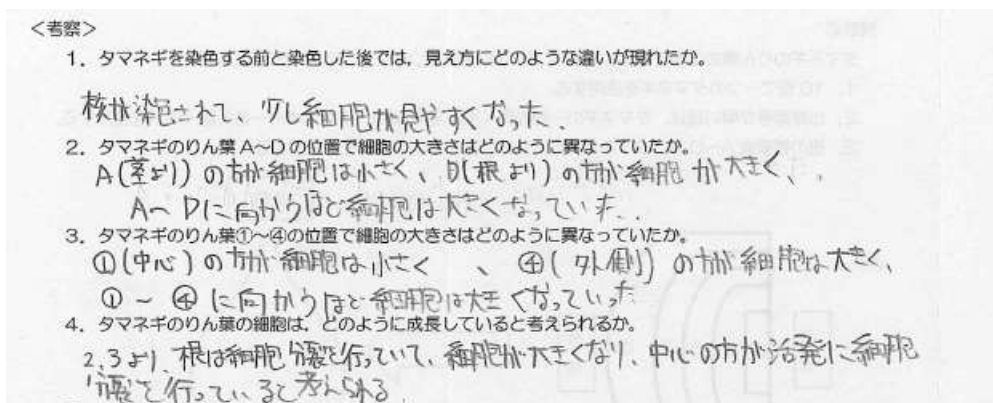 <考察>
1．タマネギを染色する前と染色した後では，見え方にどのような違いが現れたか。
核が染色されて、少し細胞が見やすくなった.
2．タマネギのりん葉A～Dの位置で細胞の大きさはどのように異なっていたか。
A(茎より)の方が細胞は小さく、D(根より)の方が細胞が大きく、
A～Dに向かうほど細胞は大きくなっていき..
3．タマネギのりん葉①～④の位置で細胞の大きさはどのように異なっていたか。
①(中心)の方が細胞は小さく、④(外側)の方が細胞は大きく、
①～④に向かうほど細胞は大きくなっていった
4．タマネギのりん葉の細胞は，どのように成長していると考えられるか。
2,3より、根は細胞分裂を行っていて、細胞が大きくなり、中心の方が活発に細胞
分裂を行っていると考えられる